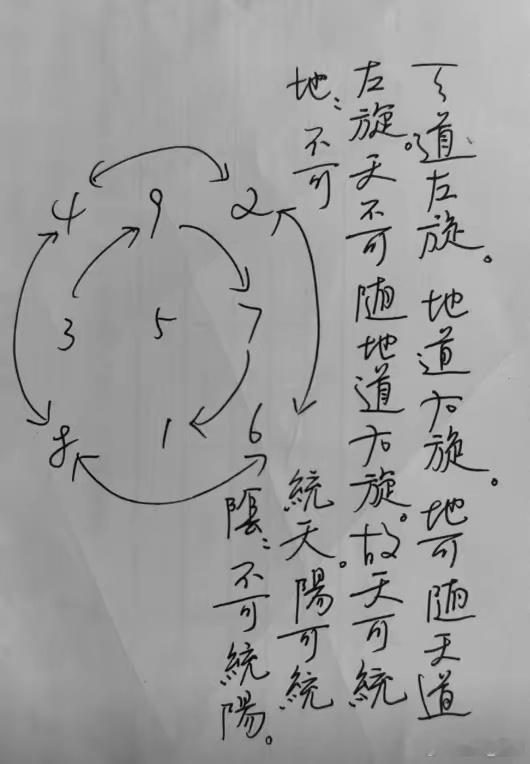 天道左旋。地道右旋。地可随天道
左旋。天不可随地道右旋。故天可統
地：不可統天。陽可統
陰：不可統陽。
4 9 2
3 5 7
8 1 6